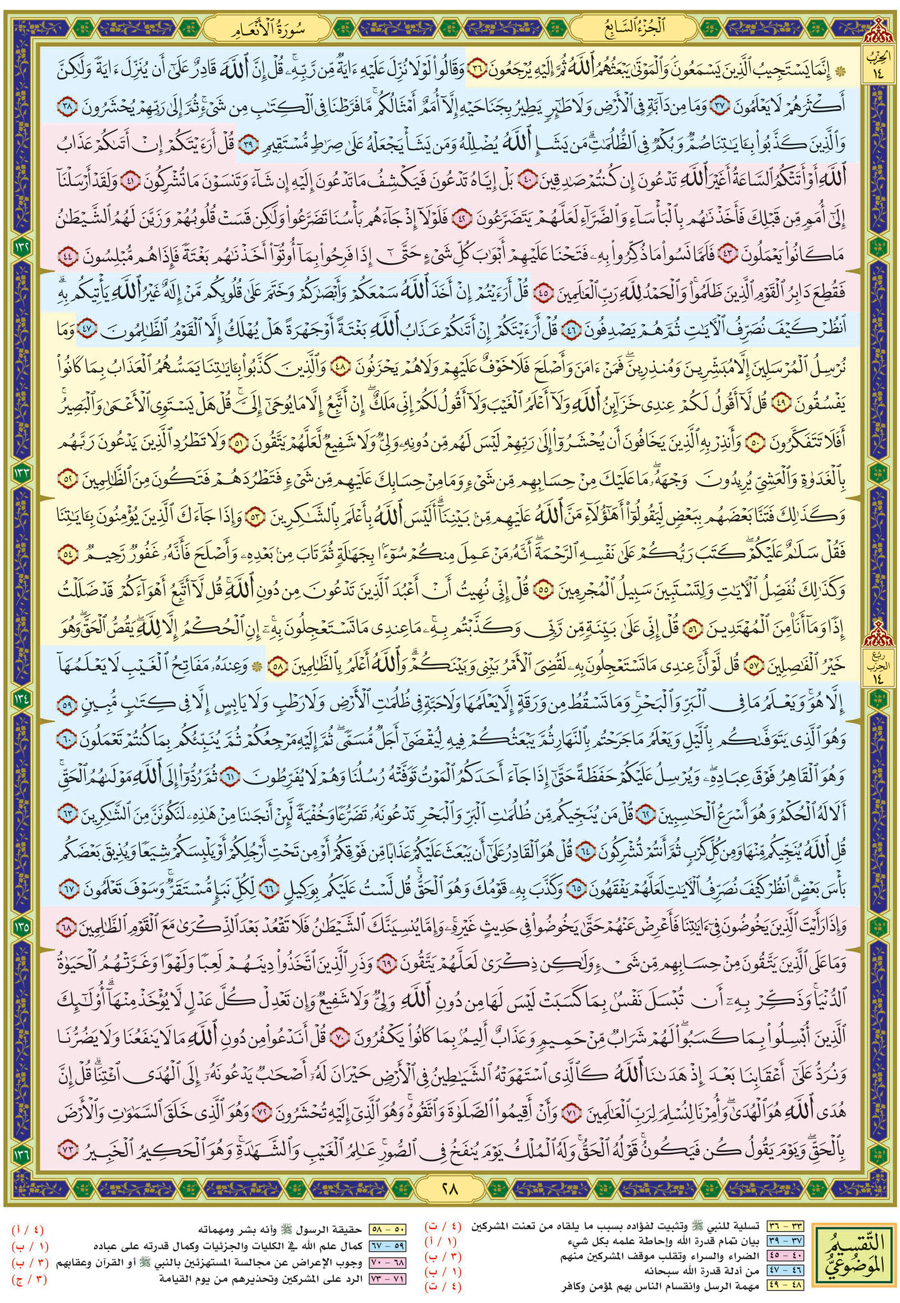 سُورَةُ الأَنْعَامِ
الْجُزْءُ السَّابِعُ
الحزب ١٤
۞ إِنَّمَا يَسْتَجِيبُ ٱلَّذِينَ يَسْمَعُونَۘ وَٱلْمَوْتَىٰ يَبْعَثُهُمُ ٱللَّهُ ثُمَّ إِلَيْهِ يُرْجَعُونَ ٣٦ وَقَالُوا۟ لَوْلَا نُزِّلَ عَلَيْهِ ءَايَةٌ مِّن رَّبِّهِۦۚ قُلْ إِنَّ ٱللَّهَ قَادِرٌ عَلَىٰٓ أَن يُنَزِّلَ ءَايَةً وَلَٰكِنَّ
أَكْثَرَهُمْ لَا يَعْلَمُونَ ٣٧ وَمَا مِن دَآبَّةٍ فِى ٱلْأَرْضِ وَلَا طَٰٓئِرٍ يَطِيرُ بِجَنَاحَيْهِ إِلَّآ أُمَمٌ أَمْثَالُكُمۚ مَّا فَرَّطْنَا فِى ٱلْكِتَٰبِ مِن شَىْءٍۚ ثُمَّ إِلَىٰ رَبِّهِمْ يُحْشَرُونَ ٣٨
وَٱلَّذِينَ كَذَّبُوا۟ بِـَٔايَٰتِنَا صُمٌّ وَبُكْمٌ فِى ٱلظُّلُمَٰتِۗ مَن يَشَإِ ٱللَّهُ يُضْلِلْهُ وَمَن يَشَأْ يَجْعَلْهُ عَلَىٰ صِرَٰطٍ مُّسْتَقِيمٍ ٣٩ قُلْ أَرَءَيْتَكُمْ إِنْ أَتَىٰكُمْ عَذَابُ
ٱللَّهِ أَوْ أَتَتْكُمُ ٱلسَّاعَةُ أَغَيْرَ ٱللَّهِ تَدْعُونَ إِن كُنتُمْ صَٰدِقِينَ ٤٠ بَلْ إِيَّاهُ تَدْعُونَ فَيَكْشِفُ مَا تَدْعُونَ إِلَيْهِ إِن شَآءَ وَتَنسَوْنَ مَا تُشْرِكُونَ ٤١ وَلَقَدْ أَرْسَلْنَآ
إِلَىٰٓ أُمَمٍ مِّن قَبْلِكَ فَأَخَذْنَٰهُم بِٱلْبَأْسَآءِ وَٱلضَّرَّآءِ لَعَلَّهُمْ يَتَضَرَّعُونَ ٤٢ فَلَوْلَآ إِذْ جَآءَهُم بَأْسُنَا تَضَرَّعُوا۟ وَلَٰكِن قَسَتْ قُلُوبُهُمْ وَزَيَّنَ لَهُمُ ٱلشَّيْطَٰنُ
١٣٢
مَا كَانُوا۟ يَعْمَلُونَ ٤٣ فَلَمَّا نَسُوا۟ مَا ذُكِّرُوا۟ بِهِۦ فَتَحْنَا عَلَيْهِمْ أَبْوَٰبَ كُلِّ شَىْءٍ حَتَّىٰٓ إِذَا فَرِحُوا۟ بِمَآ أُوتُوٓا۟ أَخَذْنَٰهُم بَغْتَةً فَإِذَا هُم مُّبْلِسُونَ ٤٤
فَقُطِعَ دَابِرُ ٱلْقَوْمِ ٱلَّذِينَ ظَلَمُوا۟ۚ وَٱلْحَمْدُ لِلَّهِ رَبِّ ٱلْعَٰلَمِينَ ٤٥ قُلْ أَرَءَيْتُمْ إِنْ أَخَذَ ٱللَّهُ سَمْعَكُمْ وَأَبْصَٰرَكُمْ وَخَتَمَ عَلَىٰ قُلُوبِكُم مَّنْ إِلَٰهٌ غَيْرُ ٱللَّهِ يَأْتِيكُم بِهِۗ
ٱنظُرْ كَيْفَ نُصَرِّفُ ٱلْءَايَٰتِ ثُمَّ هُمْ يَصْدِفُونَ ٤٦ قُلْ أَرَءَيْتَكُمْ إِنْ أَتَىٰكُمْ عَذَابُ ٱللَّهِ بَغْتَةً أَوْ جَهْرَةً هَلْ يُهْلَكُ إِلَّا ٱلْقَوْمُ ٱلظَّٰلِمُونَ ٤٧ وَمَا
نُرْسِلُ ٱلْمُرْسَلِينَ إِلَّا مُبَشِّرِينَ وَمُنذِرِينَۖ فَمَنْ ءَامَنَ وَأَصْلَحَ فَلَا خَوْفٌ عَلَيْهِمْ وَلَا هُمْ يَحْزَنُونَ ٤٨ وَٱلَّذِينَ كَذَّبُوا۟ بِـَٔايَٰتِنَا يَمَسُّهُمُ ٱلْعَذَابُ بِمَا كَانُوا۟
يَفْسُقُونَ ٤٩ قُل لَّآ أَقُولُ لَكُمْ عِندِى خَزَآئِنُ ٱللَّهِ وَلَآ أَعْلَمُ ٱلْغَيْبَ وَلَآ أَقُولُ لَكُمْ إِنِّى مَلَكٌۖ إِنْ أَتَّبِعُ إِلَّا مَا يُوحَىٰٓ إِلَىَّۚ قُلْ هَلْ يَسْتَوِى ٱلْأَعْمَىٰ وَٱلْبَصِيرُۚ
أَفَلَا تَتَفَكَّرُونَ ٥٠ وَأَنذِرْ بِهِ ٱلَّذِينَ يَخَافُونَ أَن يُحْشَرُوٓا۟ إِلَىٰ رَبِّهِمْۙ لَيْسَ لَهُم مِّن دُونِهِۦ وَلِىٌّ وَلَا شَفِيعٌ لَّعَلَّهُمْ يَتَّقُونَ ٥١ وَلَا تَطْرُدِ ٱلَّذِينَ يَدْعُونَ رَبَّهُم
١٣٣
بِٱلْغَدَوٰةِ وَٱلْعَشِىِّ يُرِيدُونَ وَجْهَهُۥۖ مَا عَلَيْكَ مِنْ حِسَابِهِم مِّن شَىْءٍ وَمَا مِنْ حِسَابِكَ عَلَيْهِم مِّن شَىْءٍ فَتَطْرُدَهُمْ فَتَكُونَ مِنَ ٱلظَّٰلِمِينَ ٥٢
وَكَذَٰلِكَ فَتَنَّا بَعْضَهُم بِبَعْضٍ لِّيَقُولُوٓا۟ أَهَٰٓؤُلَآءِ مَنَّ ٱللَّهُ عَلَيْهِم مِّنۢ بَيْنِنَآۗ أَلَيْسَ ٱللَّهُ بِأَعْلَمَ بِٱلشَّٰكِرِينَ ٥٣ وَإِذَا جَآءَكَ ٱلَّذِينَ يُؤْمِنُونَ بِـَٔايَٰتِنَا
فَقُلْ سَلَٰمٌ عَلَيْكُمْۖ كَتَبَ رَبُّكُمْ عَلَىٰ نَفْسِهِ ٱلرَّحْمَةَۖ أَنَّهُۥ مَنْ عَمِلَ مِنكُمْ سُوٓءًۢا بِجَهَٰلَةٍ ثُمَّ تَابَ مِنۢ بَعْدِهِۦ وَأَصْلَحَ فَأَنَّهُۥ غَفُورٌ رَّحِيمٌ ٥٤
وَكَذَٰلِكَ نُفَصِّلُ ٱلْءَايَٰتِ وَلِتَسْتَبِينَ سَبِيلُ ٱلْمُجْرِمِينَ ٥٥ قُلْ إِنِّى نُهِيتُ أَنْ أَعْبُدَ ٱلَّذِينَ تَدْعُونَ مِن دُونِ ٱللَّهِۚ قُل لَّآ أَتَّبِعُ أَهْوَآءَكُمْۙ قَدْ ضَلَلْتُ
إِذًا وَمَآ أَنَا۠ مِنَ ٱلْمُهْتَدِينَ ٥٦ قُلْ إِنِّى عَلَىٰ بَيِّنَةٍ مِّن رَّبِّى وَكَذَّبْتُم بِهِۦۚ مَا عِندِى مَا تَسْتَعْجِلُونَ بِهِۦٓۚ إِنِ ٱلْحُكْمُ إِلَّا لِلَّهِۖ يَقُصُّ ٱلْحَقَّۖ وَهُوَ
ربع الحزب ١٤
خَيْرُ ٱلْفَٰصِلِينَ ٥٧ قُل لَّوْ أَنَّ عِندِى مَا تَسْتَعْجِلُونَ بِهِۦ لَقُضِىَ ٱلْأَمْرُ بَيْنِى وَبَيْنَكُمْۗ وَٱللَّهُ أَعْلَمُ بِٱلظَّٰلِمِينَ ٥٨ ۞ وَعِندَهُۥ مَفَاتِحُ ٱلْغَيْبِ لَا يَعْلَمُهَآ
١٣٤
إِلَّا هُوَۚ وَيَعْلَمُ مَا فِى ٱلْبَرِّ وَٱلْبَحْرِۚ وَمَا تَسْقُطُ مِن وَرَقَةٍ إِلَّا يَعْلَمُهَا وَلَا حَبَّةٍ فِى ظُلُمَٰتِ ٱلْأَرْضِ وَلَا رَطْبٍ وَلَا يَابِسٍ إِلَّا فِى كِتَٰبٍ مُّبِينٍ ٥٩
وَهُوَ ٱلَّذِى يَتَوَفَّىٰكُم بِٱلَّيْلِ وَيَعْلَمُ مَا جَرَحْتُم بِٱلنَّهَارِ ثُمَّ يَبْعَثُكُمْ فِيهِ لِيُقْضَىٰٓ أَجَلٌ مُّسَمًّىۖ ثُمَّ إِلَيْهِ مَرْجِعُكُمْ ثُمَّ يُنَبِّئُكُم بِمَا كُنتُمْ تَعْمَلُونَ ٦٠
وَهُوَ ٱلْقَاهِرُ فَوْقَ عِبَادِهِۦۖ وَيُرْسِلُ عَلَيْكُمْ حَفَظَةً حَتَّىٰٓ إِذَا جَآءَ أَحَدَكُمُ ٱلْمَوْتُ تَوَفَّتْهُ رُسُلُنَا وَهُمْ لَا يُفَرِّطُونَ ٦١ ثُمَّ رُدُّوٓا۟ إِلَى ٱللَّهِ مَوْلَىٰهُمُ ٱلْحَقِّۚ
أَلَا لَهُ ٱلْحُكْمُ وَهُوَ أَسْرَعُ ٱلْحَٰسِبِينَ ٦٢ قُلْ مَن يُنَجِّيكُم مِّن ظُلُمَٰتِ ٱلْبَرِّ وَٱلْبَحْرِ تَدْعُونَهُۥ تَضَرُّعًا وَخُفْيَةً لَّئِنْ أَنجَىٰنَا مِنْ هَٰذِهِۦ لَنَكُونَنَّ مِنَ ٱلشَّٰكِرِينَ ٦٣
قُلِ ٱللَّهُ يُنَجِّيكُم مِّنْهَا وَمِن كُلِّ كَرْبٍ ثُمَّ أَنتُمْ تُشْرِكُونَ ٦٤ قُلْ هُوَ ٱلْقَادِرُ عَلَىٰٓ أَن يَبْعَثَ عَلَيْكُمْ عَذَابًا مِّن فَوْقِكُمْ أَوْ مِن تَحْتِ أَرْجُلِكُمْ أَوْ يَلْبِسَكُمْ شِيَعًا وَيُذِيقَ بَعْضَكُم
بَأْسَ بَعْضٍۗ ٱنظُرْ كَيْفَ نُصَرِّفُ ٱلْءَايَٰتِ لَعَلَّهُمْ يَفْقَهُونَ ٦٥ وَكَذَّبَ بِهِۦ قَوْمُكَ وَهُوَ ٱلْحَقُّۚ قُل لَّسْتُ عَلَيْكُم بِوَكِيلٍ ٦٦ لِّكُلِّ نَبَإٍ مُّسْتَقَرٌّۚ وَسَوْفَ تَعْلَمُونَ ٦٧
١٣٥
وَإِذَا رَأَيْتَ ٱلَّذِينَ يَخُوضُونَ فِىٓ ءَايَٰتِنَا فَأَعْرِضْ عَنْهُمْ حَتَّىٰ يَخُوضُوا۟ فِى حَدِيثٍ غَيْرِهِۦۚ وَإِمَّا يُنسِيَنَّكَ ٱلشَّيْطَٰنُ فَلَا تَقْعُدْ بَعْدَ ٱلذِّكْرَىٰ مَعَ ٱلْقَوْمِ ٱلظَّٰلِمِينَ ٦٨
وَمَا عَلَى ٱلَّذِينَ يَتَّقُونَ مِنْ حِسَابِهِم مِّن شَىْءٍ وَلَٰكِن ذِكْرَىٰ لَعَلَّهُمْ يَتَّقُونَ ٦٩ وَذَرِ ٱلَّذِينَ ٱتَّخَذُوا۟ دِينَهُمْ لَعِبًا وَلَهْوًا وَغَرَّتْهُمُ ٱلْحَيَوٰةُ
ٱلدُّنْيَاۚ وَذَكِّرْ بِهِۦٓ أَن تُبْسَلَ نَفْسٌۢ بِمَا كَسَبَتْ لَيْسَ لَهَا مِن دُونِ ٱللَّهِ وَلِىٌّ وَلَا شَفِيعٌ وَإِن تَعْدِلْ كُلَّ عَدْلٍ لَّا يُؤْخَذْ مِنْهَآۗ أُو۟لَٰٓئِكَ
ٱلَّذِينَ أُبْسِلُوا۟ بِمَا كَسَبُوا۟ۖ لَهُمْ شَرَابٌ مِّنْ حَمِيمٍ وَعَذَابٌ أَلِيمٌۢ بِمَا كَانُوا۟ يَكْفُرُونَ ٧٠ قُلْ أَنَدْعُوا۟ مِن دُونِ ٱللَّهِ مَا لَا يَنفَعُنَا وَلَا يَضُرُّنَا
وَنُرَدُّ عَلَىٰٓ أَعْقَابِنَا بَعْدَ إِذْ هَدَىٰنَا ٱللَّهُ كَٱلَّذِى ٱسْتَهْوَتْهُ ٱلشَّيَٰطِينُ فِى ٱلْأَرْضِ حَيْرَانَ لَهُۥٓ أَصْحَٰبٌ يَدْعُونَهُۥٓ إِلَى ٱلْهُدَى ٱئْتِنَاۗ قُلْ إِنَّ
هُدَى ٱللَّهِ هُوَ ٱلْهُدَىٰۖ وَأُمِرْنَا لِنُسْلِمَ لِرَبِّ ٱلْعَٰلَمِينَ ٧١ وَأَنْ أَقِيمُوا۟ ٱلصَّلَوٰةَ وَٱتَّقُوهُۚ وَهُوَ ٱلَّذِىٓ إِلَيْهِ تُحْشَرُونَ ٧٢ وَهُوَ ٱلَّذِى خَلَقَ ٱلسَّمَٰوَٰتِ وَٱلْأَرْضَ
١٣٦
بِٱلْحَقِّۖ وَيَوْمَ يَقُولُ كُن فَيَكُونُۚ قَوْلُهُ ٱلْحَقُّۚ وَلَهُ ٱلْمُلْكُ يَوْمَ يُنفَخُ فِى ٱلصُّورِۚ عَٰلِمُ ٱلْغَيْبِ وَٱلشَّهَٰدَةِۚ وَهُوَ ٱلْحَكِيمُ ٱلْخَبِيرُ ٧٣
٢٨
التَّقْسِيمُ المَوْضُوعِيُّ
٣٣ - ٣٦ تسلية للنبي ﷺ وتثبيت لفؤاده بسبب ما يلقاه من تعنت المشركين (٤ / ت)
٣٧ - ٣٩ بيان تمام قدرة الله وإحاطة علمه بكل شيء (١ / أ)
٤٠ - ٤٥ الضراء والسراء وتقلب موقف المشركين منهم (٣ / ب)
٤٦ - ٤٧ من أدلة قدرة الله سبحانه (١ / ب)
٤٨ - ٤٩ مهمة الرسول وانقسام الناس بهم لمؤمن وكافر (٤ / ت)
٥٠ - ٥٨ حقيقة الرسول ﷺ وأنه بشر ومهماته (٤ / أ)
٥٩ - ٦٧ كمال علم الله في الكليات والجزئيات وكمال قدرته على عباده (١ / ب)
٦٨ - ٧٠ وجوب الإعراض عن مجالسة المستهزئين بالنبي ﷺ أو القرآن وعقابهم (٣ / ب)
٧١ - ٧٣ الرد على المشركين وتحذيرهم من يوم القيامة (٣ / ج)